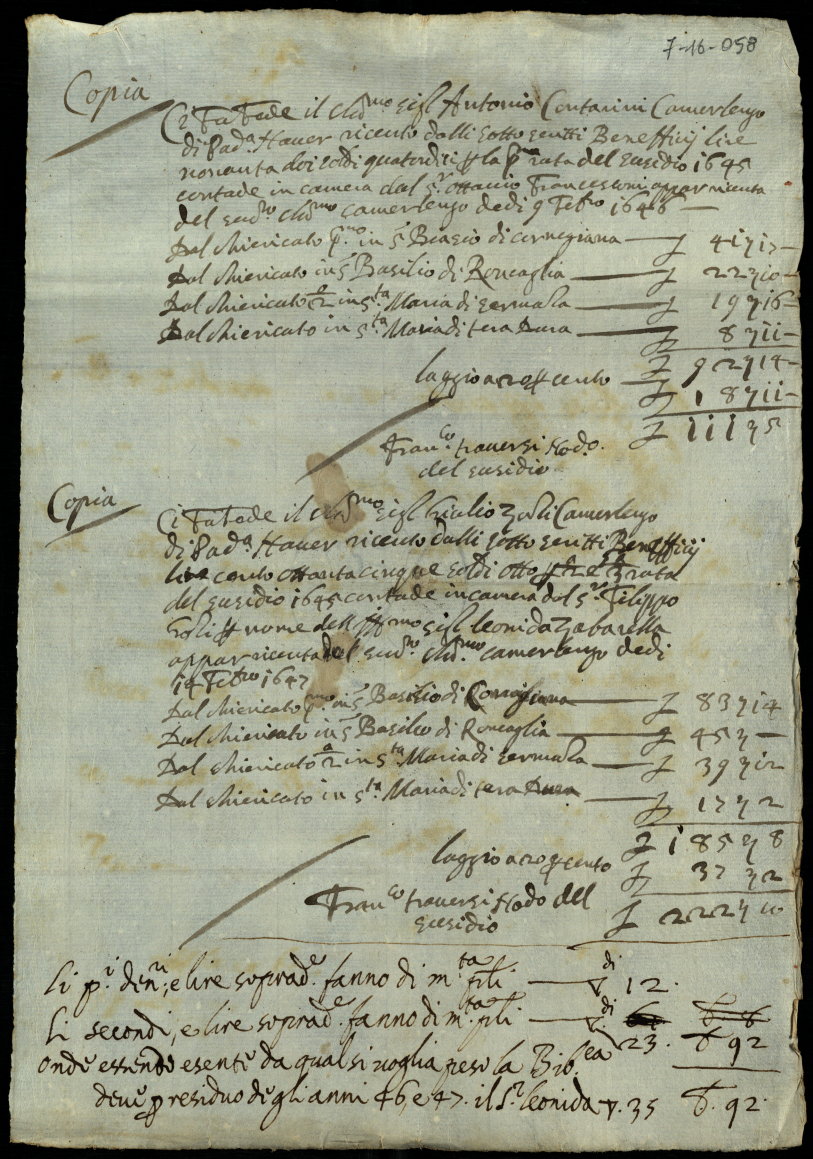 7-16-058
Copia
Si Fa Fede il Clmo Sigr Antonio Contarini Camerlengo
di Pada Haver riceuto dalli sotto scritti Benefficij lire
novanta doi soldi quatordici p la pa rata del susidio 1645
contade in camera dal Sr ottavio Francesconi appar riceuta
del sudto Clmo camerlengo dedi 9 Febro 1646 —
Dal chiericato pmo in S Biasio di — £ 41 : 17 —
Dal chiericato in S Basilio di Roncaglia — £ 22 : 10 —
Dal chiericato 2a in Sta Maria di — £ 19 : 16 —
Dal chiericato in Sta Maria di tera Dura — £ 8 : 11 —
£ 92 : 14 —
laggio a 20 p cento — £ 18 : 11 —
£ 111 : 5
Franco traversi
del susidio
Copia
Si Fa Fede il Clmo Sigr Giulio Camerlengo
di Pada Haver riceuto dalli sotto scritti Benefficij
lire cento ottanta cinque soldi otto p rata
del susidio 1645 contade in camera dal Sr Filippo
p nome dell Illmo Sigr leonida Zabarella
appar riceuta del sudto Clmo camerlengo dedi
14 Febro 1647
Dal chiericato pmo in S Basilio di — £ 83 : 14
Dal chiericato in S Basilio di Roncaglia — £ 45 : —
Dal chiericato 2a in Sta Maria di — £ 39 : 12
Dal chiericato in Sta Maria di tera Dura — £ 17 : 2
£ 185 : 8
laggio a 20 p cento £ 37 : 2
Franco traversi del
susidio £ 222 : 10
Li pi denri, e lire sopradе fanno di mta pti — di 12.
Li secondi, e lire sopradе fanno di mta pti — di 23. 92
Onde essendo esente da qual si voglia peso la
deve p residuo degli anni 46, e 47. il Sr leonida 35 92.